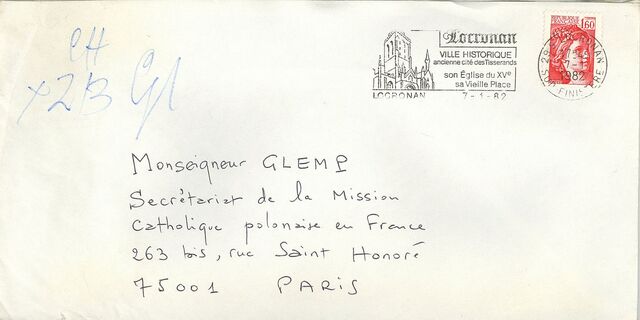 CH
x2B Gl
Locronan
VILLE HISTORIQUE
ancienne cité des Tisserands
son Église du XVe
sa Vieille Place
LOCRONAN 7-1-82
1,60
LOCRONAN
7-1
1982
FINISTERE
Monseigneur GLEMP
Secrétariat de la Mission
Catholique polonaise en France
263 bis, rue Saint Honoré
75001 PARIS